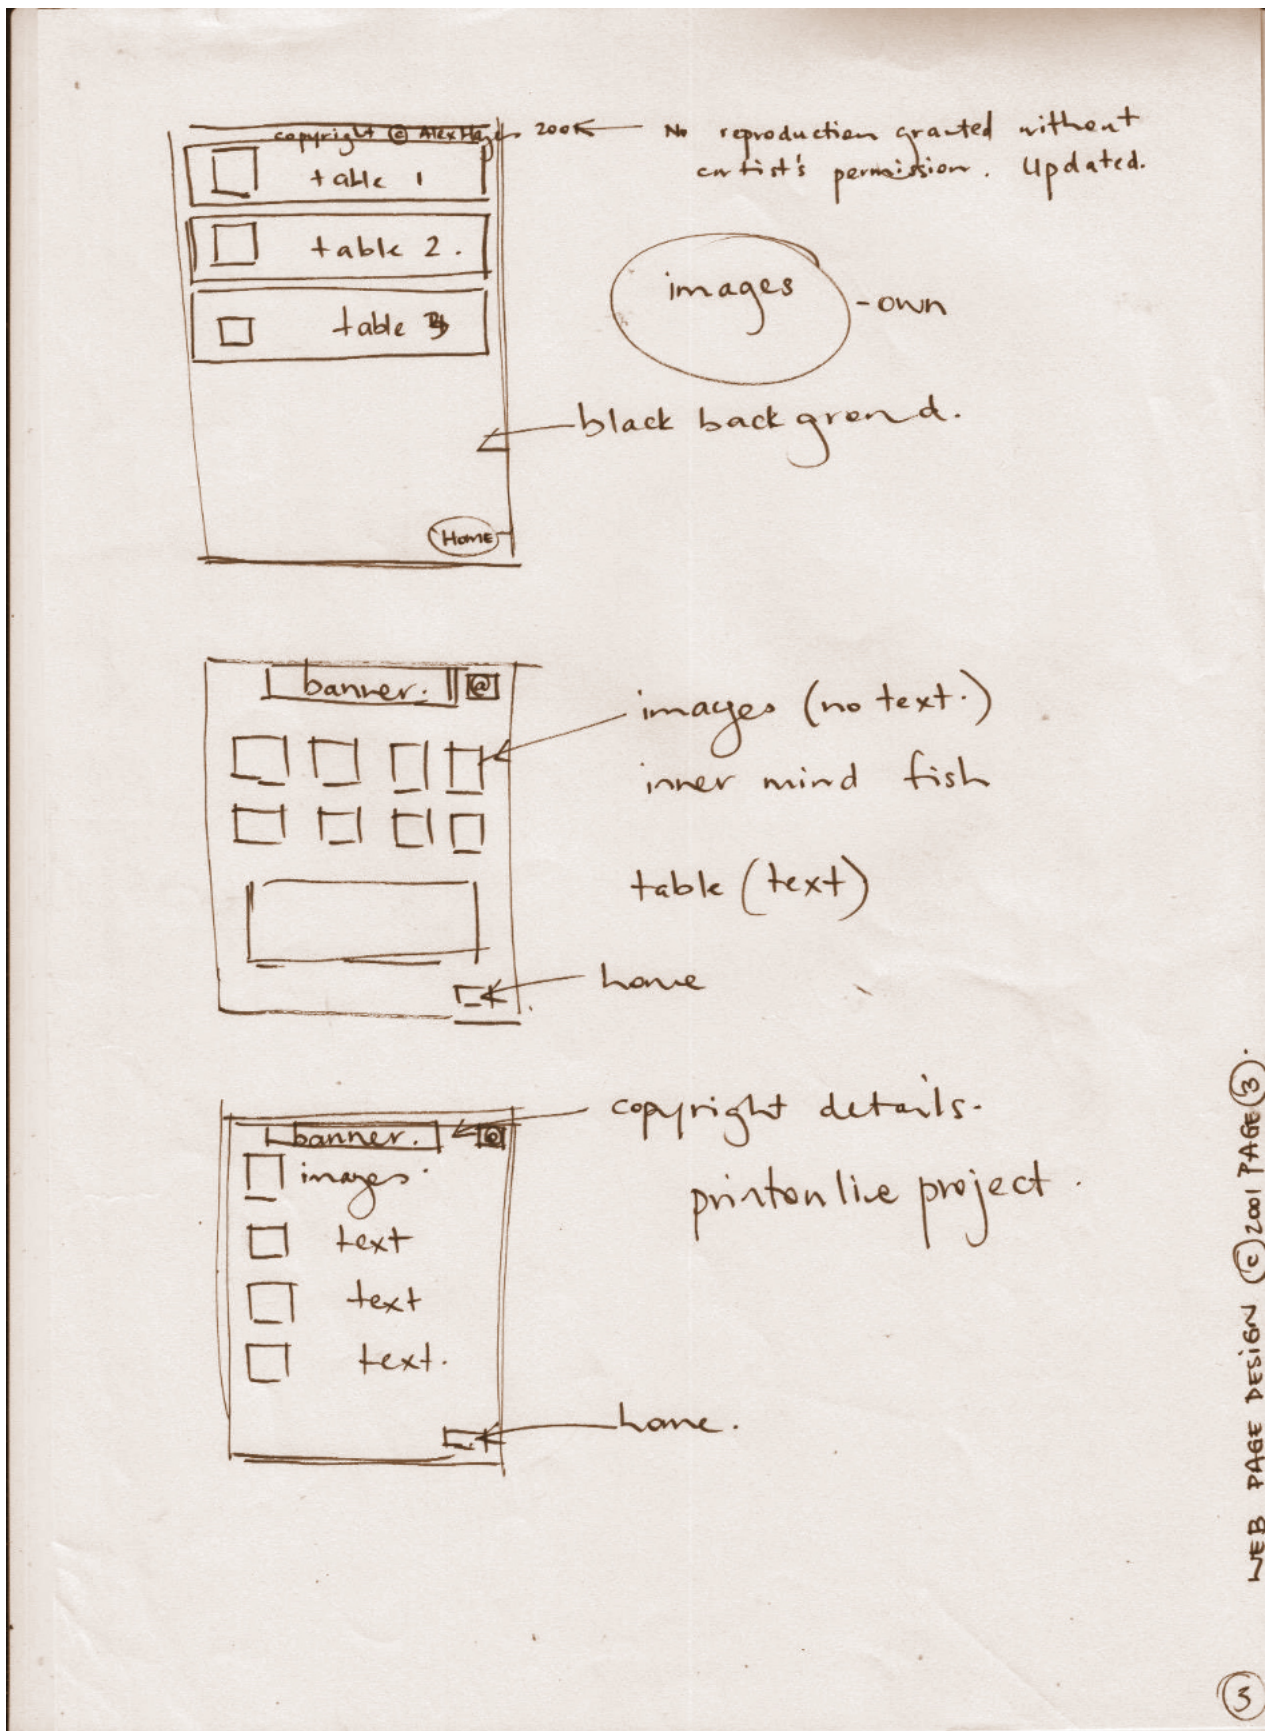 copyright © Alex Hayes 200
No reproduction granted without
artist's permission. Updated.
table 1
table 2.
table 3
images
- own
black background.
Home
banner.
@
images (no text.)
inner mind fish
table (text)
home
copyright details.
banner.
@
images.
printonline project.
text
text
text.
home.
WEB PAGE DESIGN © 2001 PAGE 3.
3